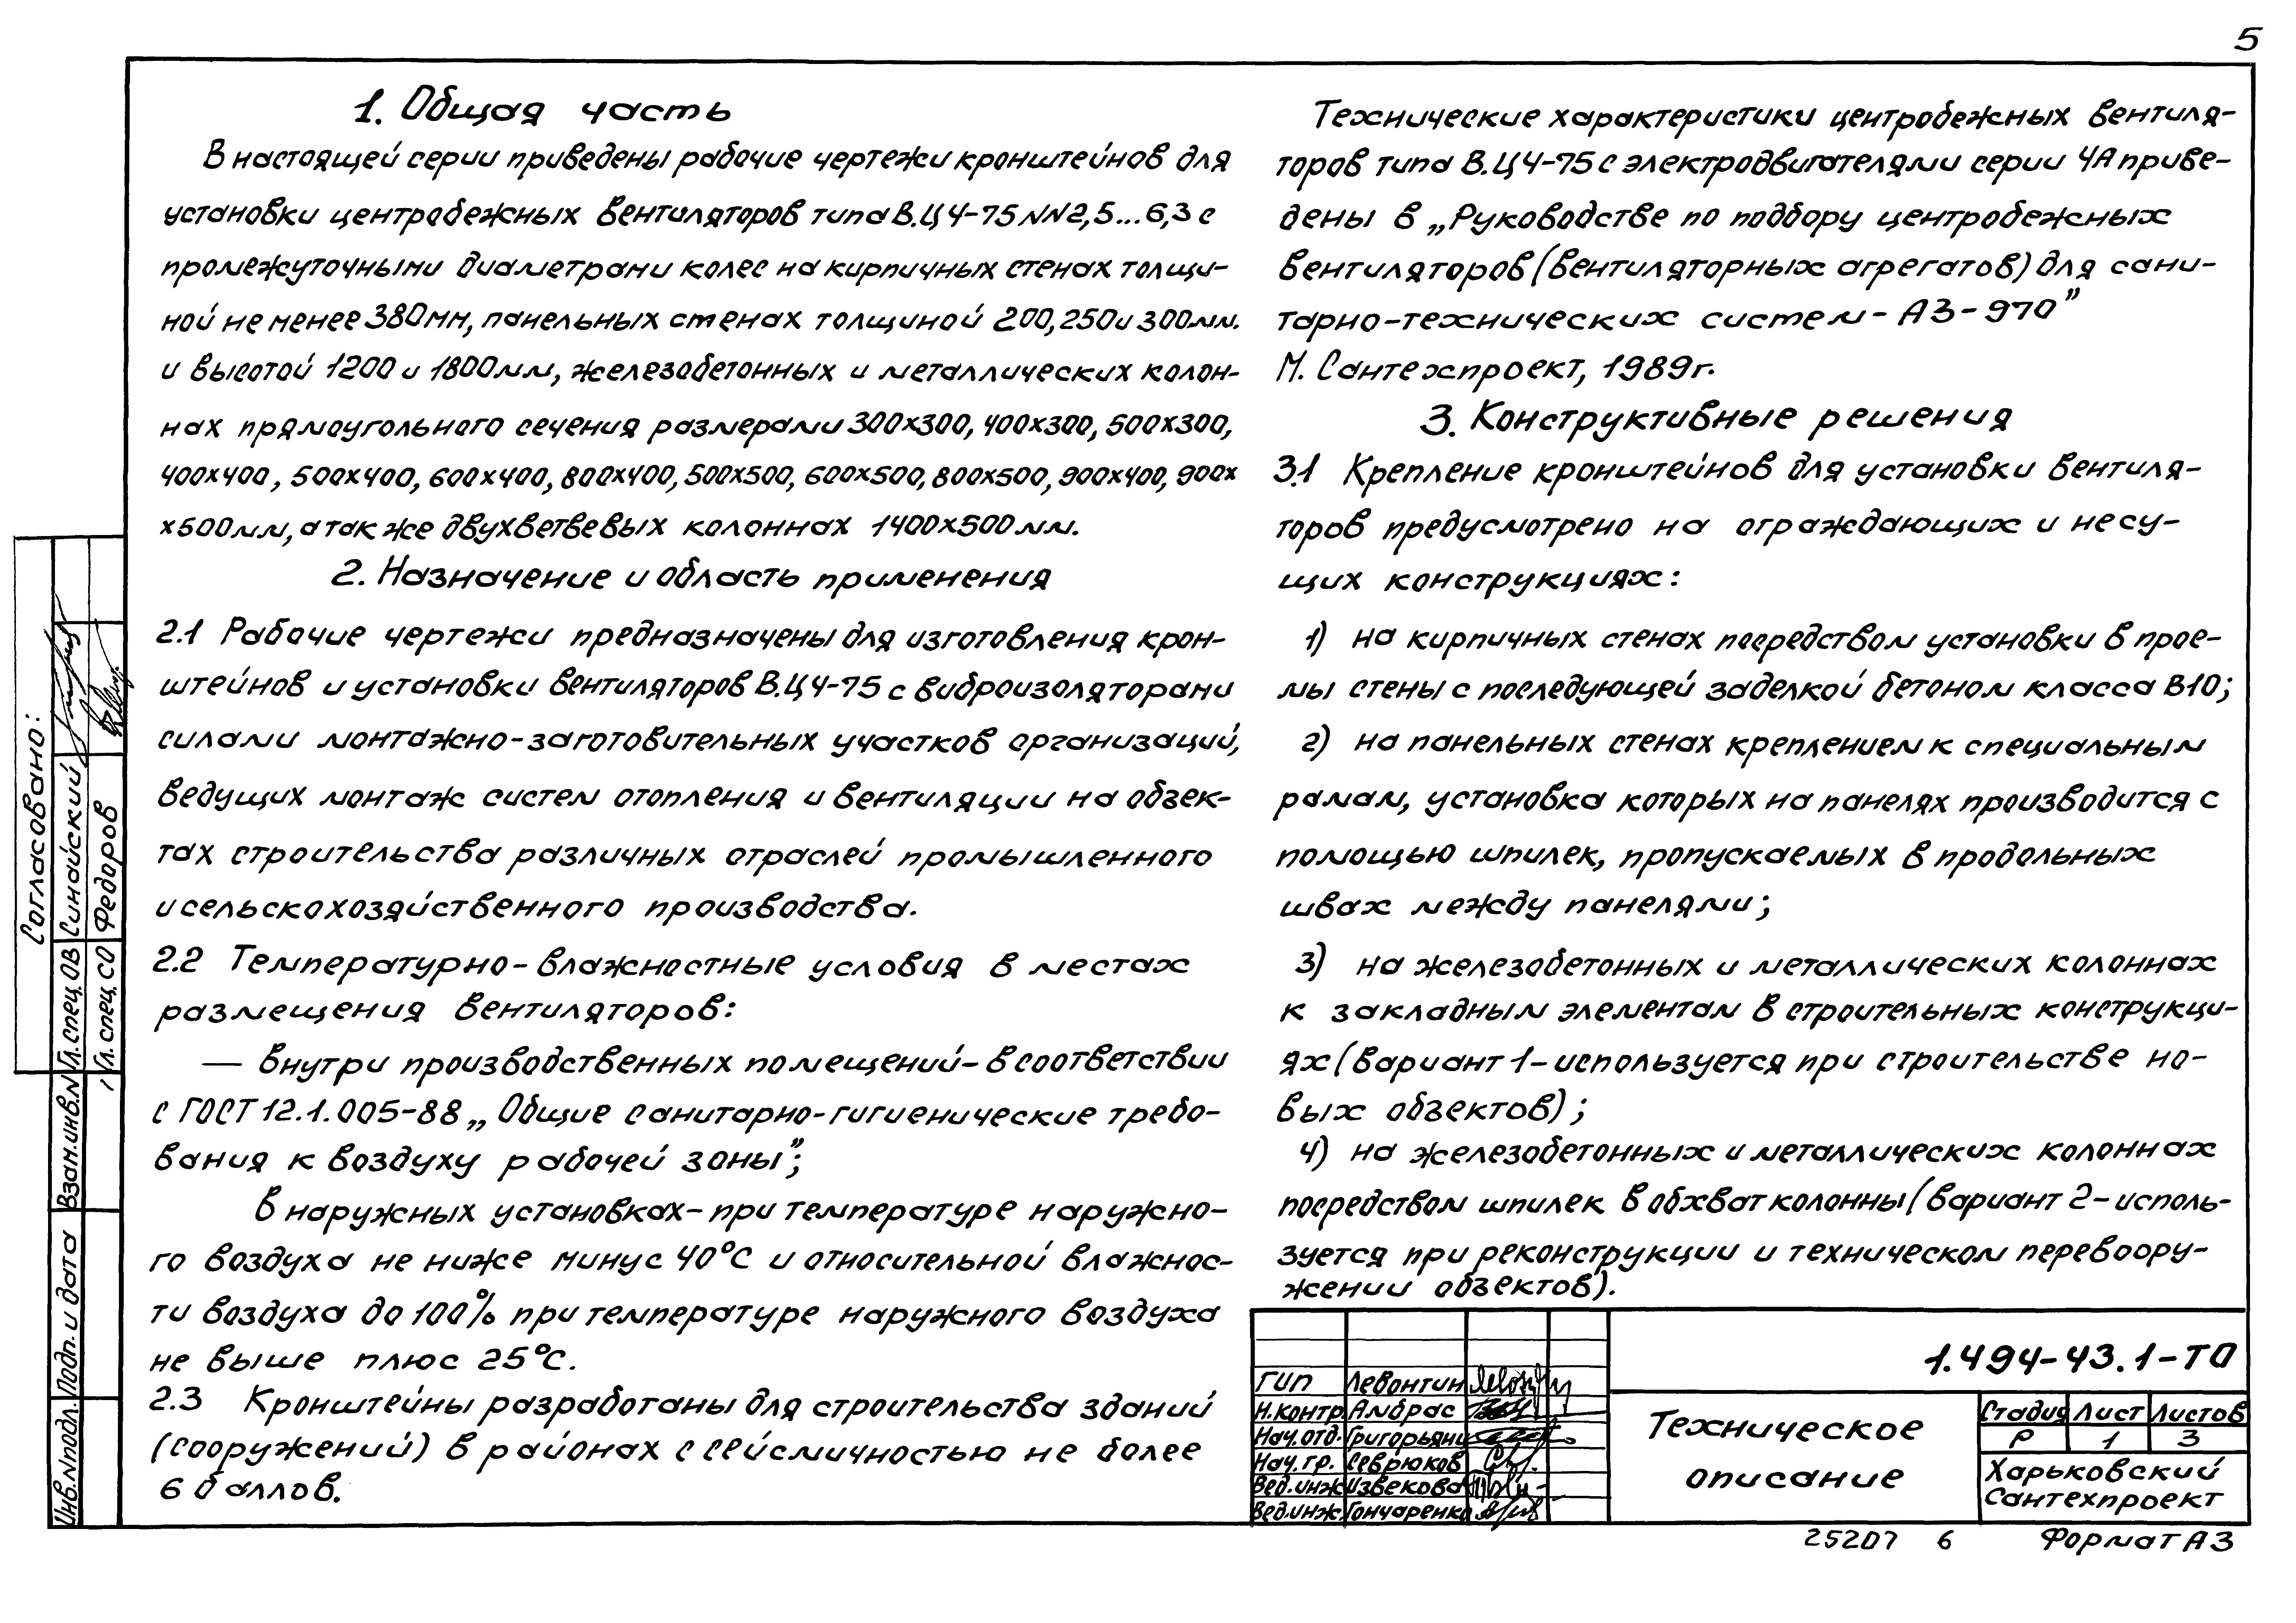 5
1. Общая часть
В настоящей серии приведены рабочие чертежи кронштейнов для
установки центробежных вентиляторов типа В.Ц 4-75 NN2,5...6,3 с
промежуточными диаметрами колес на кирпичных стенах толщи-
ной не менее 380мм, панельных стенах толщиной 200, 250 и 300мм.
и высотой 1200 и 1800мм, железобетонных и металлических колон-
нах прямоугольного сечения размерами 300х300, 400х300, 500х300,
400х400, 500х400, 600х400, 800х400, 500х500, 600х500, 800х500, 900х400, 900х
х500мм, а так же двухветвевых колоннах 1400х500мм.
2. Назначение и область применения
2.1 Рабочие чертежи предназначены для изготовления крон-
штейнов и установки вентиляторов В.Ц 4-75 с виброизоляторами
силами монтажно-заготовительных участков организаций,
ведущих монтаж систем отопления и вентиляции на объек-
тах строительства различных отраслей промышленного
и сельскохозяйственного производства.
2.2 Температурно-влажностные условия в местах
размещения вентиляторов:
— внутри производственных помещений - в соответствии
с ГОСТ 12.1.005-88 „Общие санитарно-гигиенические требо-
вания к воздуху рабочей зоны”;
в наружных установках - при температуре наружно-
го воздуха не ниже минус 40°С и относительной влажнос-
ти воздуха до 100% при температуре наружного воздуха
не выше плюс 25°С.
2.3 Кронштейны разработаны для строительства зданий
(сооружений) в районах с сейсмичностью не более
6 баллов.
Технические характеристики центробежных вентиля-
торов типа В.Ц 4-75 с электродвигателями серии 4А приве-
дены в „Руководстве по подбору центробежных
вентиляторов (вентиляторных агрегатов) для сани-
тарно-технических систем - АЗ-970”
М. Сантехпроект, 1989г.
3. Конструктивные решения
3.1 Крепление кронштейнов для установки вентиля-
торов предусмотрено на ограждающих и несу-
щих конструкциях:
1) на кирпичных стенах посредством установки в прое-
мы стены с последующей заделкой бетоном класса В10;
2) на панельных стенах креплением к специальным
рамам, установка которых на панелях производится с
помощью шпилек, пропускаемых в продольных
швах между панелями;
3) на железобетонных и металлических колоннах
к закладным элементам в строительных конструкци-
ях (вариант 1 - используется при строительстве но-
вых объектов);
4) на железобетонных и металлических колоннах
посредством шпилек в обхват колонны (вариант 2 - исполь-
зуется при реконструкции и техническом перевоору-
жении объектов).
Согласовано:
Гл. спец. ОВ Синайский
Гл. спец. СО Федоров
Взам.инв.N
Подп. и дата
Инв.Nподл.
ГИП Левонтин
Н.контр. Амбрас
Нач.отд. Григорьянц
Нач.гр. Севрюков
Вед.инж. Извекова
Вед.инж. Гончаренко
1.494-43.1-ТО
Техническое
описание
Стадия Лист Листов
Р 1 3
Харьковский
Сантехпроект
25207 6 Формат А3